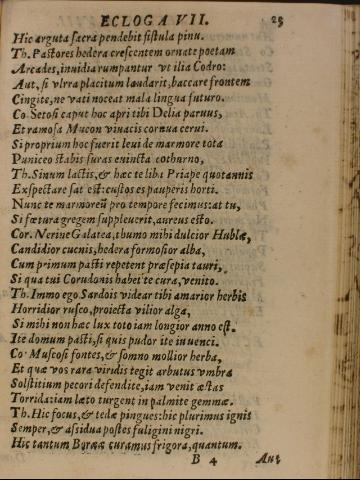 ECLOGA VII. 25
Hic arguta sacra pendebit fistula pinu.
Th. Pastores hedera crescentem ornate poetam
Arcades, inuidia rumpantur vt ilia Codro:
Aut, si vltra placitum laudarit, baccare frontem
Cingite, ne vati noceat mala lingua futuro.
Co. Setosi caput hoc apri tibi Delia paruus,
Et ramosa Mucon viuacis cornua cerui.
Si proprium hoc fuerit leui de marmore tota
Puniceo stabis suras euincta cothurno,
Th. Sinum lactis, & hæc te libi Priape quotannis
Exspectare sat est: custos es pauperis horti.
Nunc te marmoreũ pro tempore fecimus: at tu,
Si fœtura gregem suppleuerit, aureus esto.
Cor. Nerine Galatea, thumo mihi dulcior Hublæ,
Candidior cucnis, hedera formosior alba,
Cum primum pasti repetent præsepia tauri,
Si qua tui Corudonis habet te cura, venito.
Th. Immo ego Sardois videar tibi amarior herbis
Horridior rusco, proiecta vilior alga,
Si mihi non hæc lux toto iam longior anno est.
Ite domum pasti, si quis pudor ite iuuenci.
Co. Muscosi fontes, & somno mollior herba,
Et quæ vos rara viridis tegit arbutus vmbra
Solstitium pecori defendite, iam venit æstas
Torrida: iam læto turgent in palmite gemmæ.
Th. Hic focus, & tedæ pingues: hic plurimus ignis
Semper, & assidua postes fuligini nigri.
Hic tantum Boreæ curamus frigora, quantum.
B 4 Aut